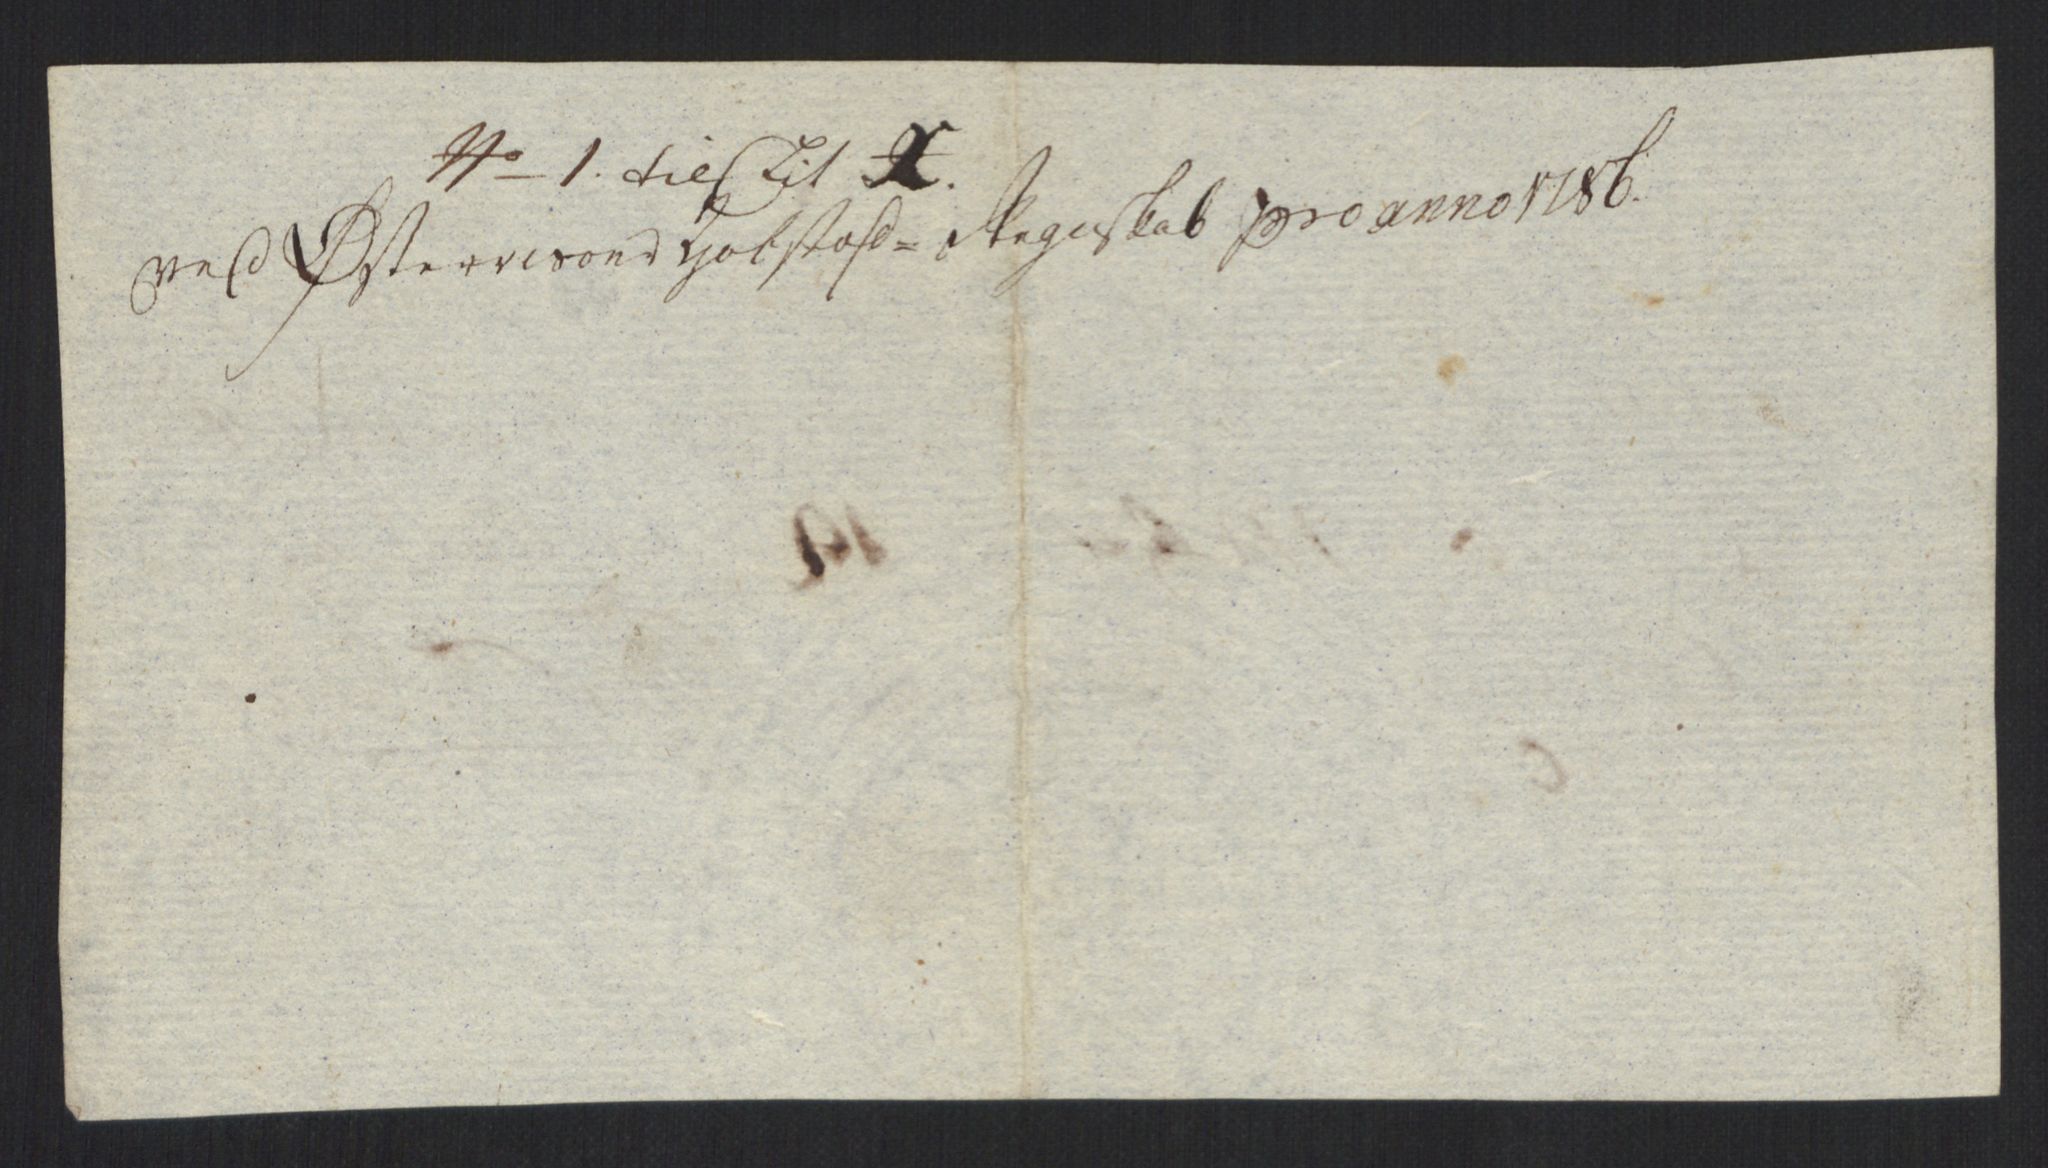 No 1. til Lit X.
ved Østerrisøers Tolsteds= Regnskab pro anno 1786.